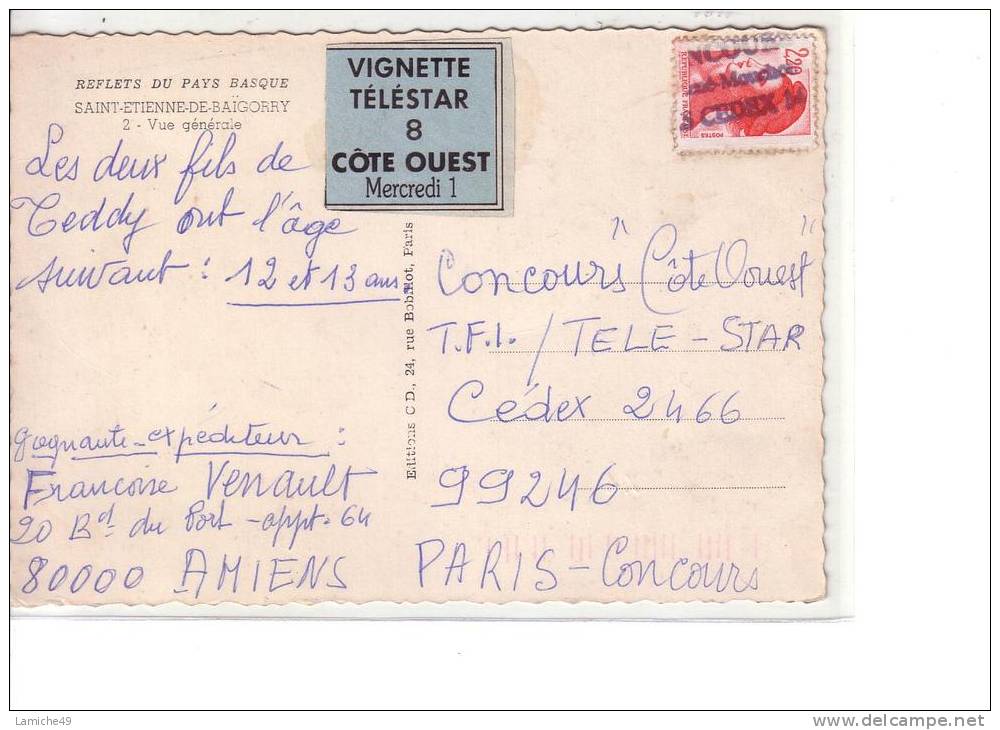 REFLETS DU PAYS BASQUE
SAINT-ETIENNE-DE-BAÏGORRY
2 - Vue générale
VIGNETTE
TÉLÉSTAR
8
CÔTE OUEST
Mercredi 1
2,20
REPUBLIQUE FRANC
POSTES
NCOUR
CEDEX
Les deux fils de
Teddy ont l'âge
suivant : 12 et 13 ans.
gagnante-expéditeur :
Francoise Venault
20 Bd du Port - appt. 64
80000 AMIENS
Editions C.D., 24, rue Bobillot, Paris
Concours "Côte Ouest"
T.F.1. / TELE - STAR
Cédex 2466
99246
PARIS - Concours
Lamiche49
delcampe.net